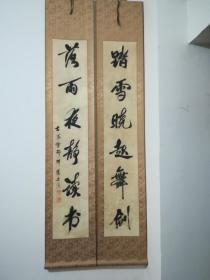 踏雪晓起舞剑
落雨夜静读书